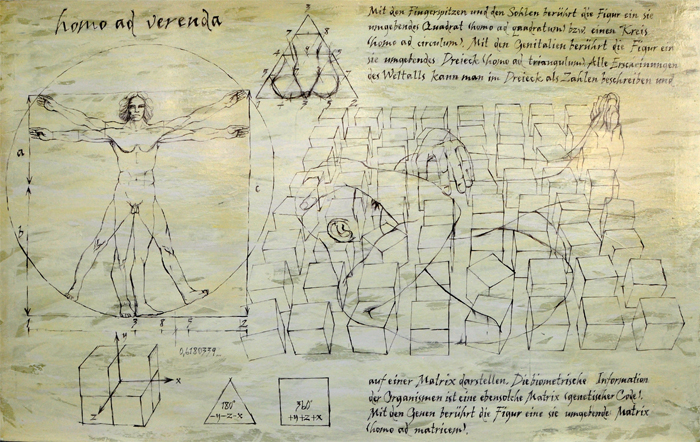 homo ad verenda
Mit den Fingerspitzen und den Sohlen berührt die Figur ein sie
umgebendes Quadrat (homo ad quadratum) bzw. einen Kreis
(homo ad circulum). Mit den Genitalien berührt die Figur ein
sie umgebendes Dreieck (homo ad triangulum). Alle Erscheinungen
des Weltalls kann man im Dreieck als Zahlen beschreiben und
a
b
c
y
x
z
180°
-y-z-x
360°
+y+z+x
auf einer Matrix darstellen. Die biometrische Information
der Organismen ist eine ebensolche Matrix (genetischer Code).
Mit den Genen berührt die Figur eine sie umgebende Matrix
(homo ad matricem).